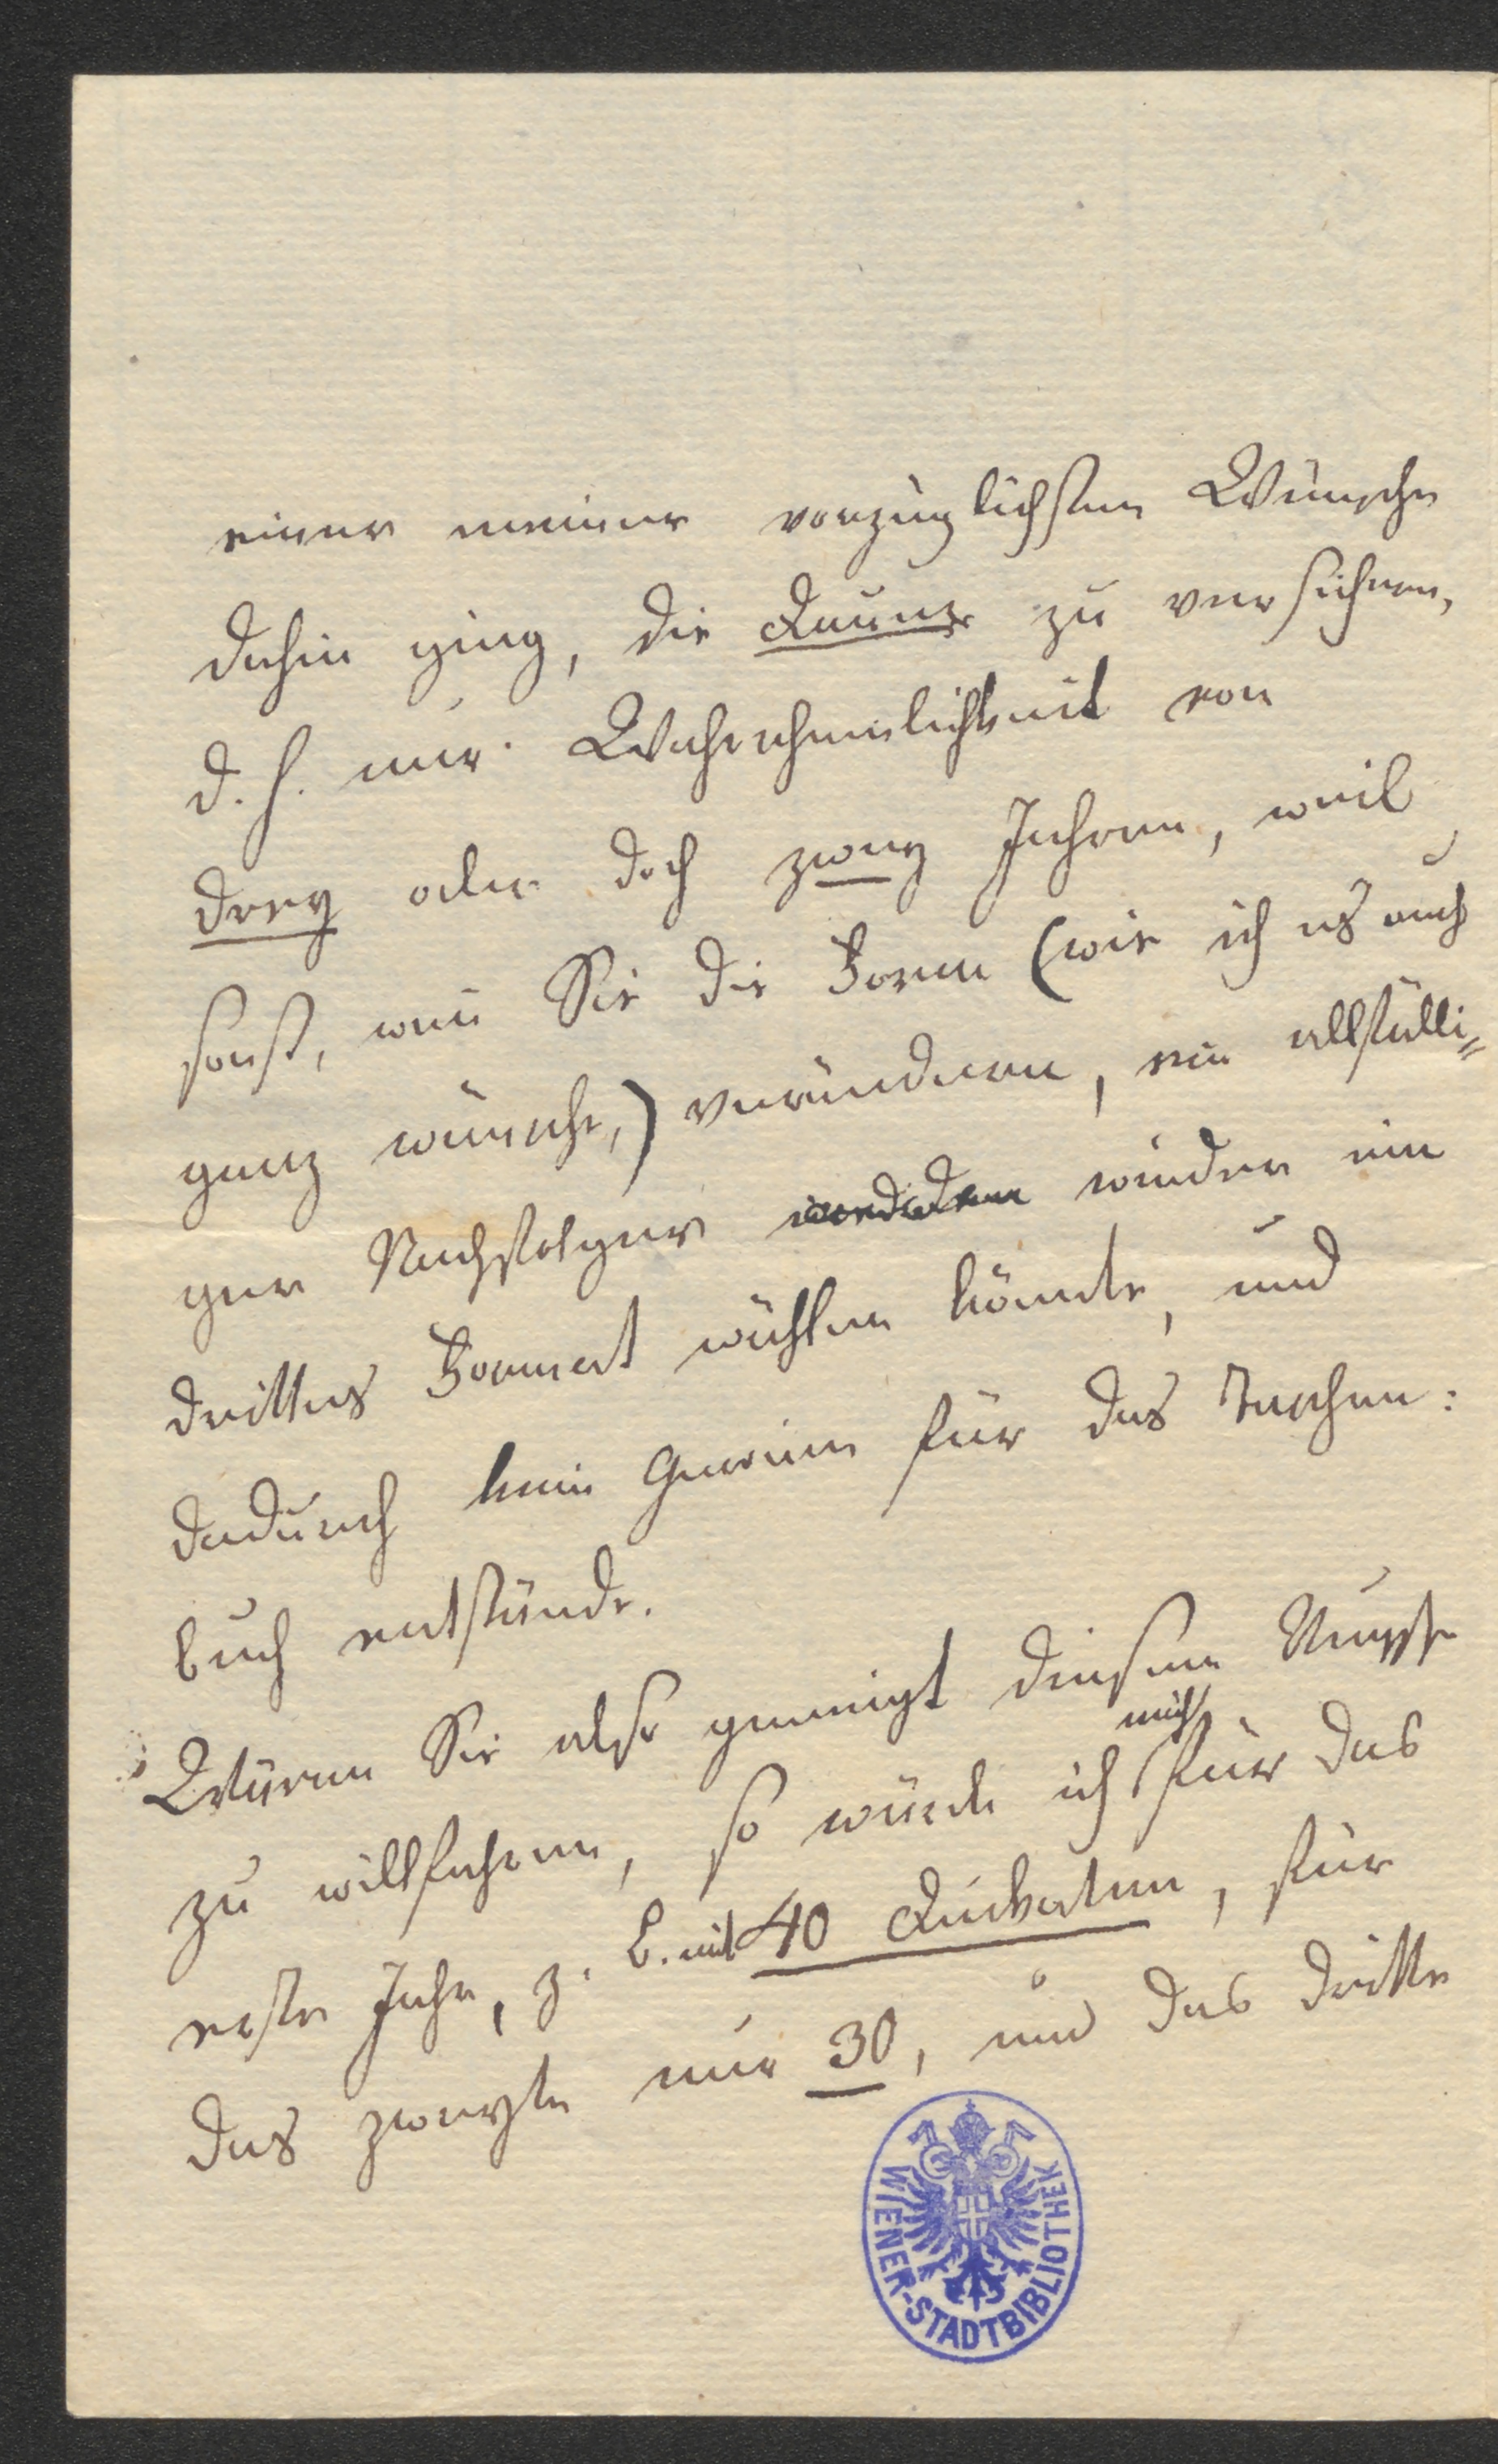 einer meiner vorzüglichsten Wünsche
dahin ging, die Dauer zu versichern,
d. h. nur Wahrscheinlichkeit von
drey oder doch zwey Jahren, weil
sonst, wen̄ Sie die Form (wie ich es auch
ganz wünsche,) verändern, ein allfälli=
ger Nachfolger wieder ein
drittes Format wählen könnte, und
dadurch kein Gewinn für das Taschen:
buch entstünde.
Wären Sie also geneigt diesem
zu willfahren, so würde ich mich für das
erste Jahr, z. B. mit 40 Dukaten, für
das zweyte nur 30, und das dritte
WIENER-STADTBIBLIOTHEK